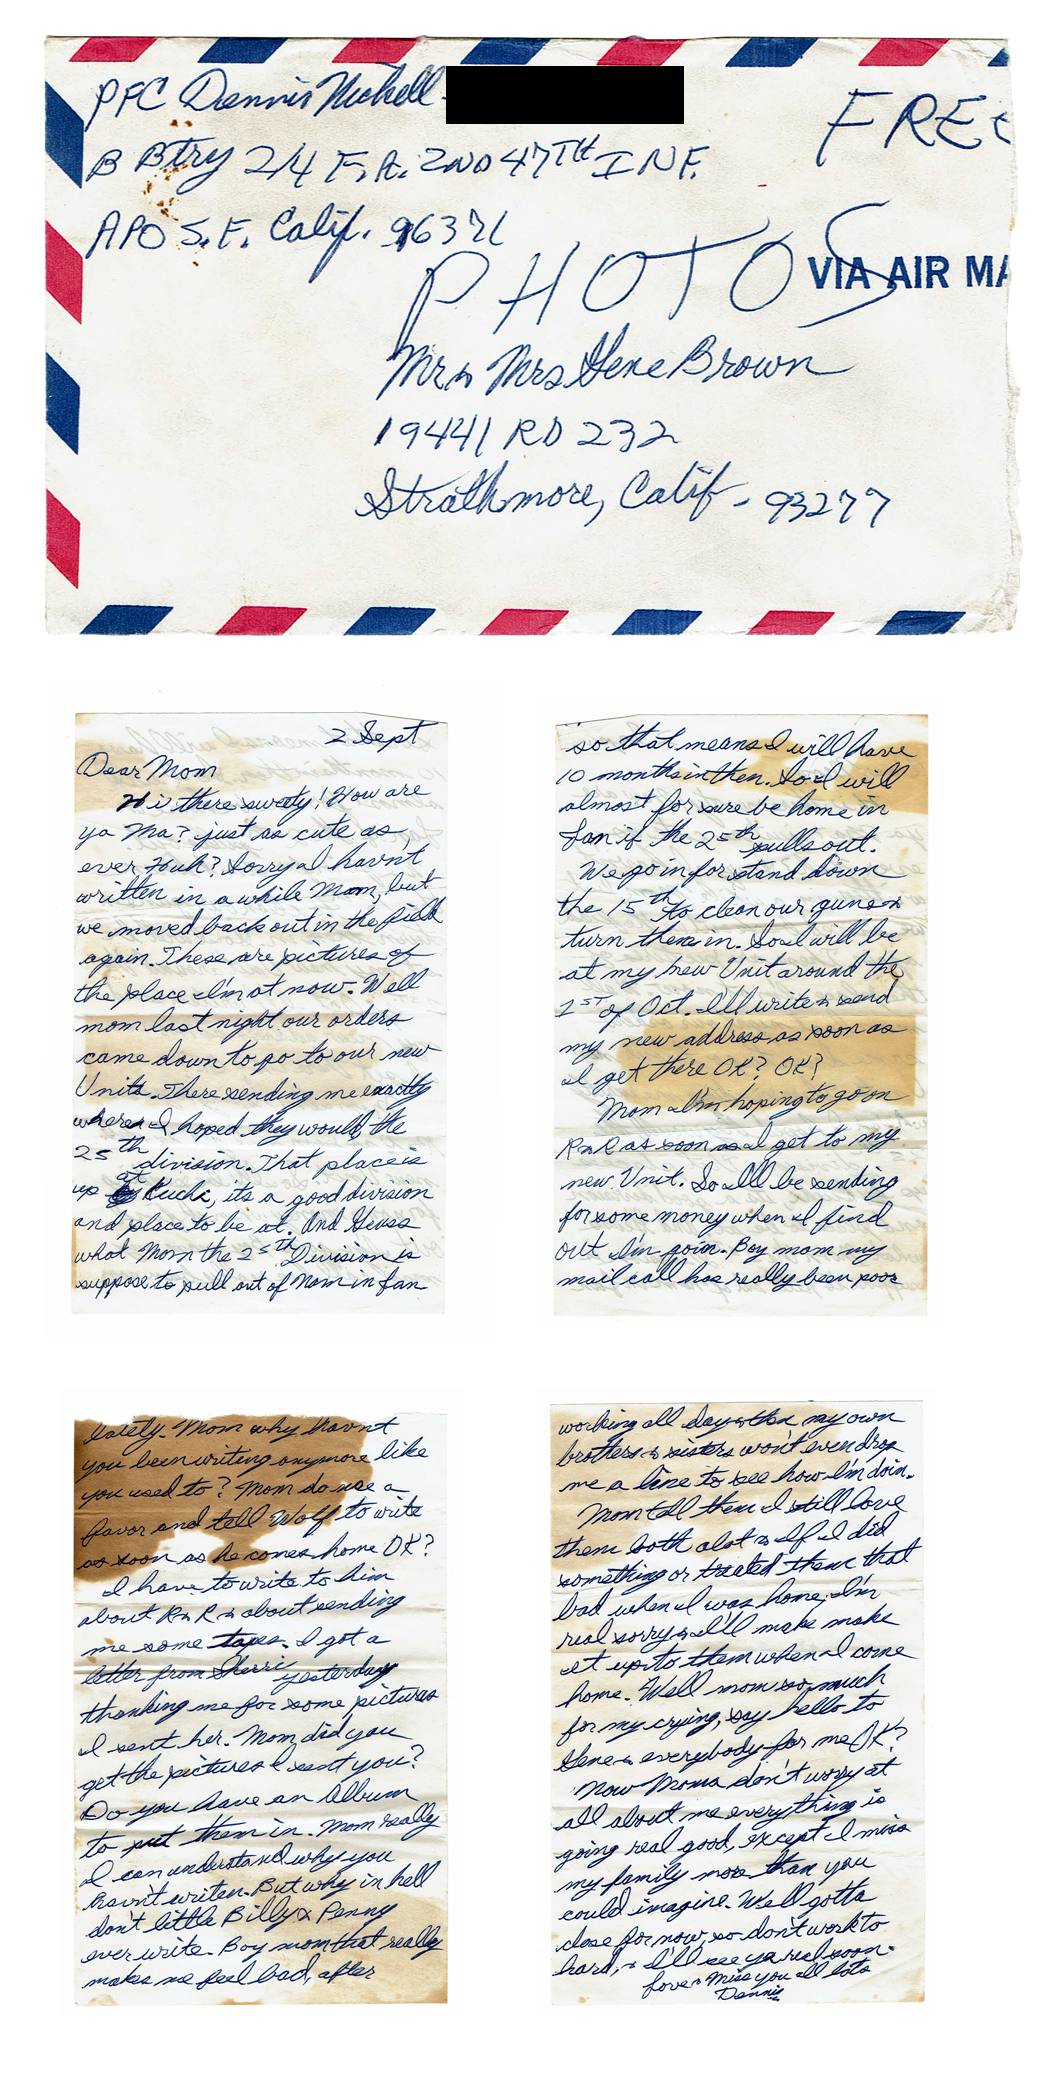 PFC Dennis Nichell
FREE
B Btry 2/4 F.A. 2ND 47TH INF.
APO S.F. Calif. 96371
PHOTOS
VIA AIR MA
Mr & Mrs Gene Brown
19441 RD 232
Strathmore, Calif - 93277
2 Sept
Dear Mom
Hi there sweety! How are
ya Ma? just as cute as
ever Huh? Sorry I havn't
written in a while Mom, but
we moved back out in the field
again. These are pictures of
the place I'm at now. Well
mom last night our orders
came down to go to our new
Units. There sending me exactly
where I hoped they would, the
25th division. That place is
up at Kuchi, its a good division
and place to be at. And Geuss
what Mom the 25th Division is
suppose to pull out of Nam in Jan
so that means I will have
10 months in then. So I will
almost for sure be home in
Jan if the 25th pulls out.
We go in for stand down
the 15th to clean our guns &
turn them in. So I will be
at my new Unit around the
1ST of Oct. I'll write & send
my new address as soon as
I get there OK? OK?
Mom I'm hoping to go on
R & R as soon as I get to my
new Unit. So I'll be sending
for some money when I find
out I'm goin. Boy mom my
mail call has really been poor
lately. Mom why havn't
you been writing anymore like
you used to? Mom do me a
favor and tell Wolf to write
as soon as he comes home OK?
I have to write to him
about R & R & about sending
me some tapes. I got a
letter from Sherri yesterday
thanking me for some pictures
I sent her. Mom, did you
get the pictures I sent you?
Do you have an Album
to put them in. Mom really
I can understand why you
havn't writen. But why in hell
don't little Billy & Penny
ever write. Boy mom that really
makes me feel bad, after
working all day & then my own
brothers & sisters won't even drop
me a line to see how I'm doin.
Mom tell them I still love
them both alot & If I did
something or treated them that
bad when I was home, I'm
real sorry & I'll make make
it up to them when I come
home. Well mom so much
for my crying, say hello to
Gene & everybody for me OK?
Now Moma don't worry at
all about me everything is
going real good, except I miss
my family more than you
could imagine. Well gotta
close for now, so don't work to
hard, & I'll see ya real soon.
Love & Miss you all lots
Dennis